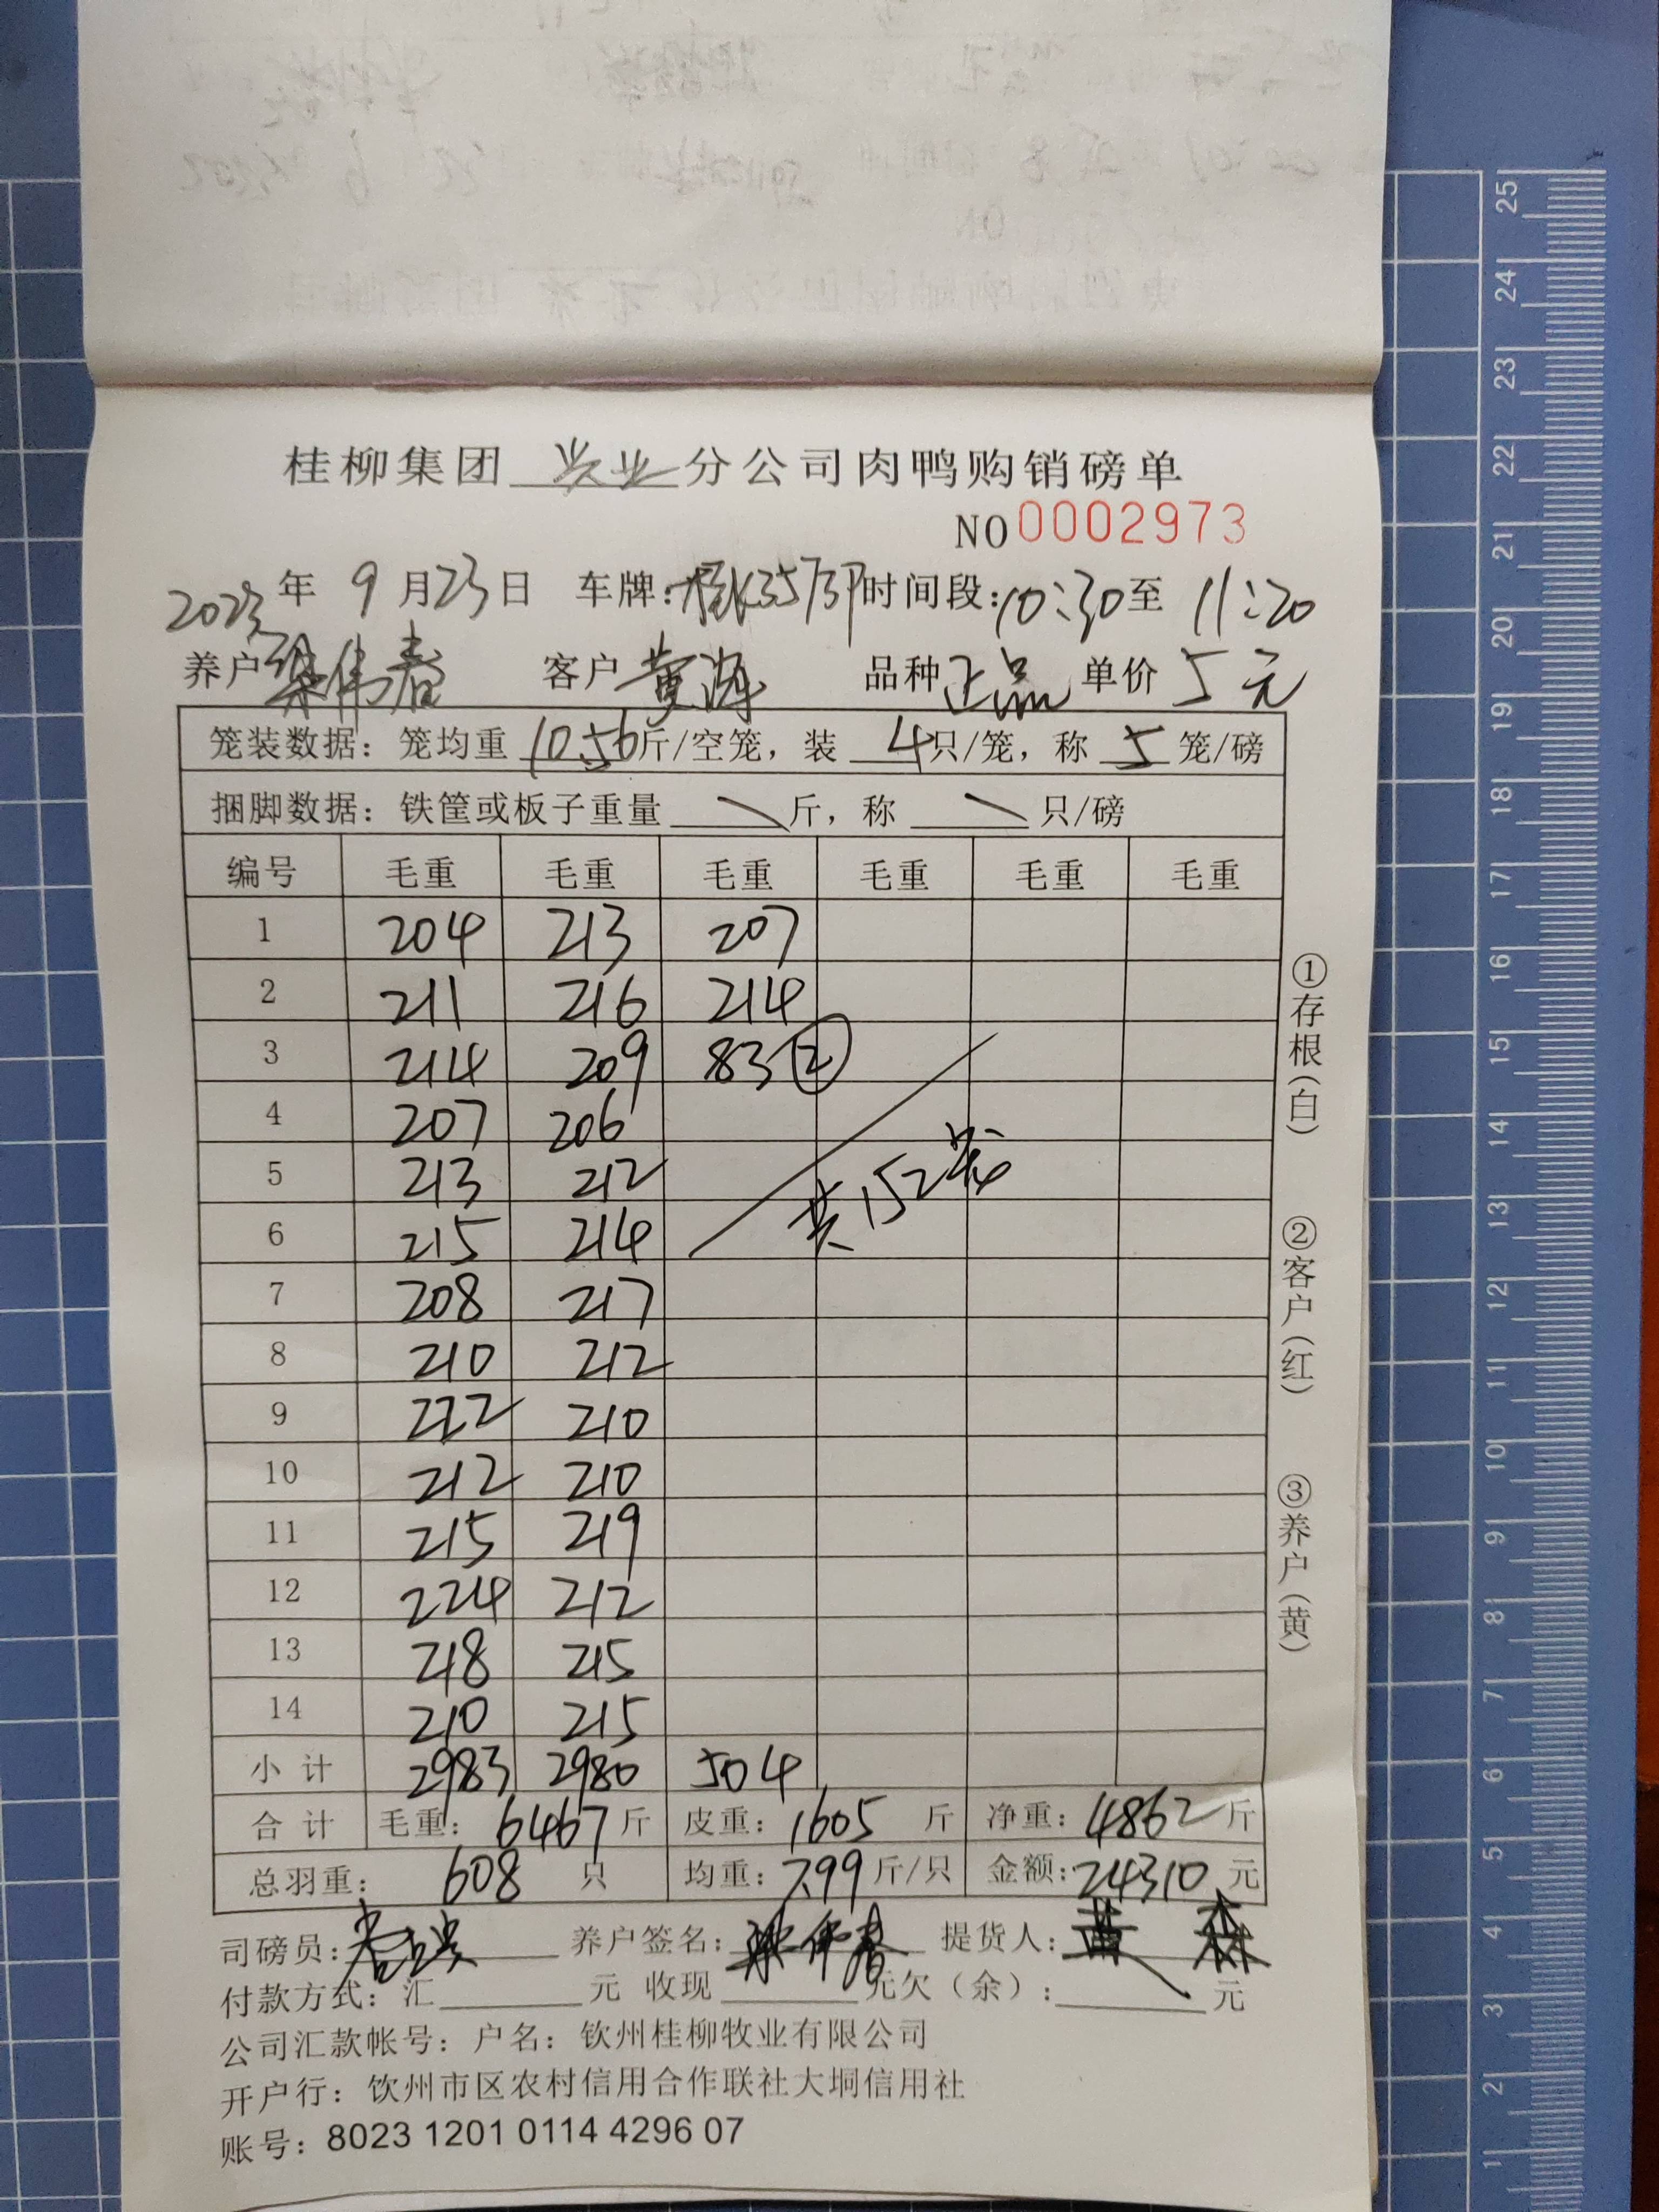 桂柳集团 兴业 分公司肉鸭购销磅单
NO 0002973
2023年 9月23日 车牌: 时间段:10:30至 11:20
养户 梁伟春 客户 黄 品种 正品 单价 5元
笼装数据: 笼均重 10.56斤/空笼, 装 4只/笼, 称 5 笼/磅
捆脚数据: 铁筐或板子重量 斤, 称 只/磅
编号 毛重 毛重 毛重 毛重 毛重 毛重
1 204 213 207
2 211 216 214
3 214 209 83 ②
4 207 206
5 213 212
共152笼
6 215 214
7 208 217
8 210 212
9 222 210
10 212 210
11 215 219
12 224 212
13 218 215
14 210 215
小计 2983 2980 504
合计 毛重: 6467斤 皮重: 1605 斤 净重: 4862斤
总羽重: 608 只 均重: 7.99斤/只 金额: 24310元
司磅员: 养户签名: 梁伟春 提货人: 黄 森
付款方式: 汇 元 收现 元欠(余): 元
公司汇款帐号: 户名: 钦州桂柳牧业有限公司
开户行: 钦州市区农村信用合作联社大垌信用社
账号: 8023 1201 0114 4296 07
①存根(白)
②客户(红)
③养户(黄)
25
24
23
22
21
20
19
18
17
16
15
14
13
12
11
10
9
8
7
6
5
4
3
2
1